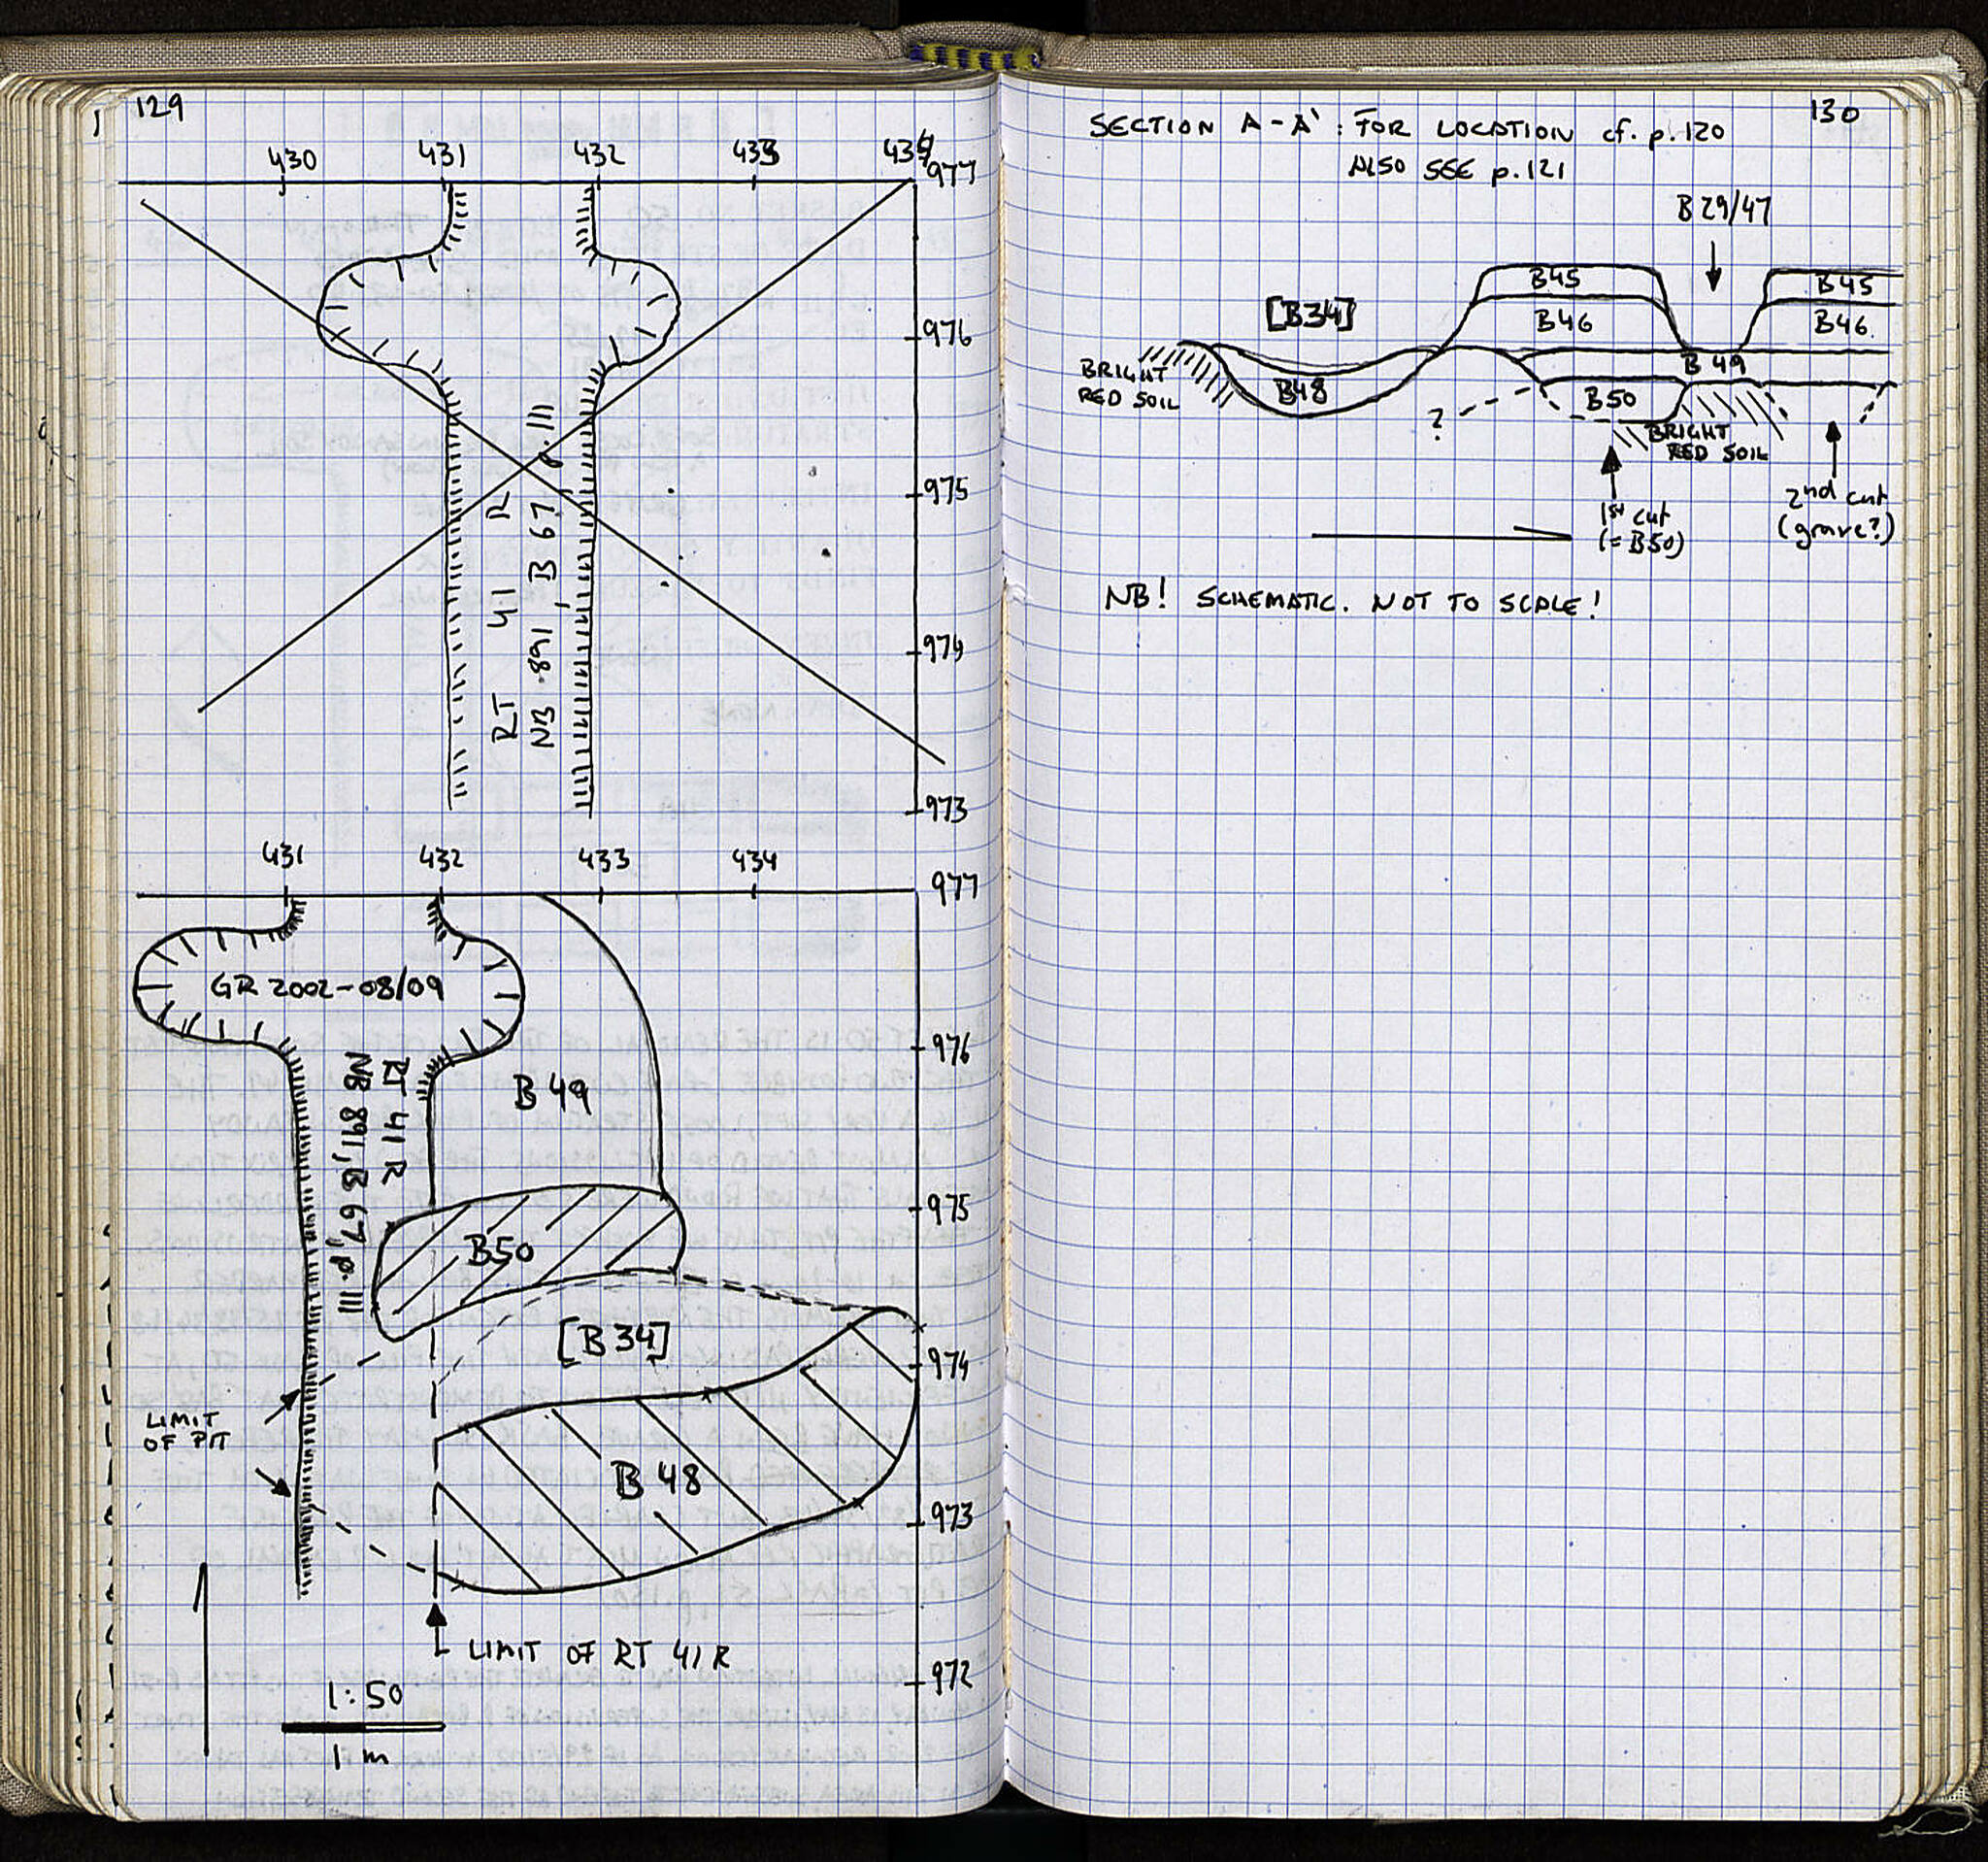 129
430 431 432 433 434
977
976
975
974
973
RT 41 R
NB 891, B 67, p.111
431 432 433 434
977
GR 2002-08/09
976
B 49
RT 41 R
NB 891, B 67, p.111
975
B50
[B 34]
974
LIMIT
OF PIT
B 48
973
LIMIT OF RT 41 R
972
1:50
1 m
130
SECTION A-A' : FOR LOCATION cf. p.120
ALSO SEE p.121
B 29/47
B45 B45
[B34] B46 B46.
B 49
BRIGHT
RED SOIL
B48 B50
?
BRIGHT
RED SOIL
1st cut
(= B50)
2nd cut
(grave?)
NB! SCHEMATIC. NOT TO SCALE!